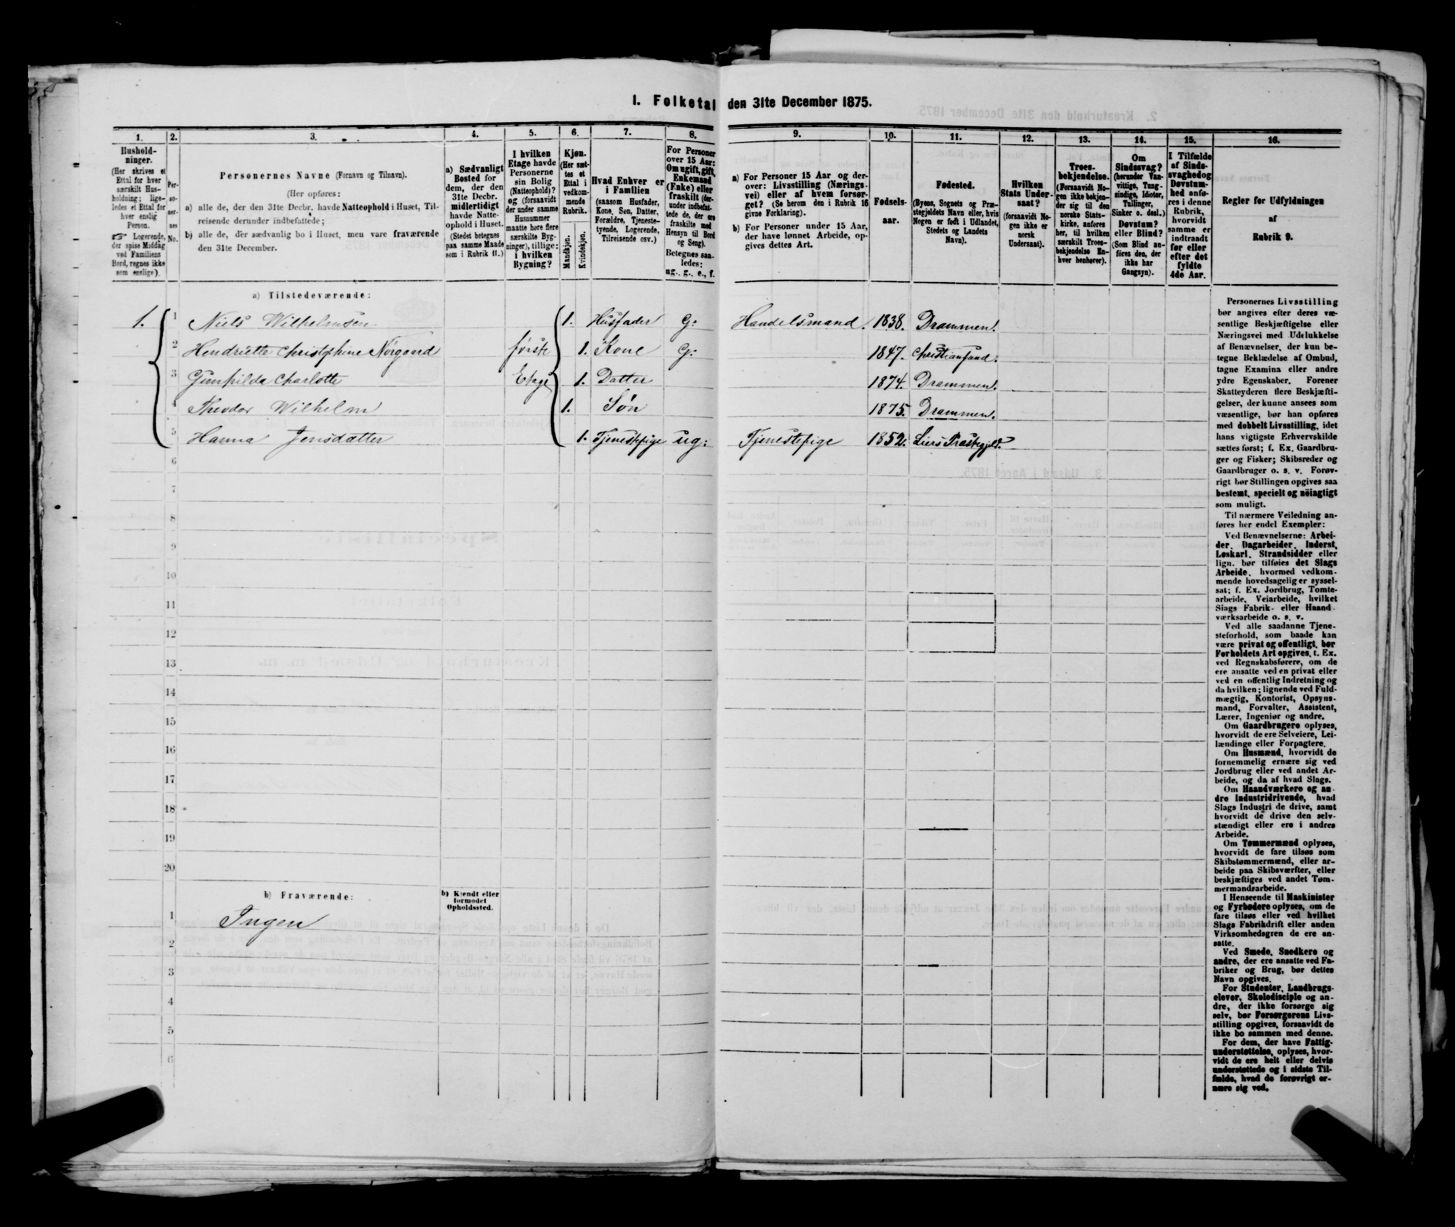 1. Folketal den 31te December 1875.
1. 2. 3. 4. 5. 6. 7. 8. 9. 10. 11. 12. 13. 14. 15. 16.
Hushold-
ninger.
(Her skrives et
Ettal for hver
særskilt Hus-
holdning; lige-
ledes et Ettal for
hver enslig
Person.
☞ Logerende,
der spise Middag
ved Familiens
Bord, regnes ikke
som enslige).
Per-
so-
ner-
nes
No.
Personernes Navne (Fornavn og Tilnavn).
(Her opføres:
a) alle de, der den 31te Decbr. havde Natteophold i Huset, Til-
reisende derunder indbefattede;
b) alle de, der sædvanlig bo i Huset, men vare fraværende
den 31te December.
a) Sædvanligt
Bosted for
dem, der den
31te Decbr.
midlertidigt
havde Natte-
ophold i Huset.
(Stedet betegnes
paa samme Maade
som i Rubrik 11.)
I hvilken
Etage havde
Personerne
sin Bolig
(Natteophold)?
og (forsaavidt
der under samme
Husnummer
maatte høre flere
særskilte Byg-
ninger), tillige:
i hvilken
Bygning?
Kjøn.
(Her sæt-
tes et
Ettal i
vedkom-
mende
Rubrik.
Mandkjøn.
Kvindekjøn.
Hvad Enhver er
i Familien
(saasom Husfader,
Kone, Søn, Datter,
Forældre, Tjeneste-
tyende, Logerende,
Tilreisende osv.)
For Personer
over 15 Aar:
Om ugift, gift,
Enkemand
(Enke) eller
fraskilt (der-
under indbefat-
tede de, der ere
fraskilte med
Hensyn til Bord
og Seng).
Betegnes saa-
ledes:
ug., g., e., f.
a) For Personer 15 Aar og der-
over: Livsstilling (Nærings-
vei) eller af hvem forsør-
get? (Se herom den i Rubrik 16
givne Forklaring).
b) For Personer under 15 Aar,
der have lønnet Arbeide, op-
gives dettes Art.
Fødsels-
aar.
Fødested.
(Byens, Sognets og Præ-
stegjeldets Navn eller, hvis
Nogen er født i Udlandet,
Stedets og Landets
Navn).
Hvilken
Stats Under-
saat?
(forsaavidt No-
gen ikke er
norsk
Undersaat).
Troes-
bekjendelse.
(Forsaavidt No-
gen ikke bekjen-
der sig til den
norske Stats-
kirke, anføres
her, til hvilken
særskilt Troes-
bekjendelse En-
hver henhører).
Om
Sindssvag?
(herunder Van-
vittige, Tung-
sindige, Idioter,
Tullinger,
Sinker o. desl.)
Døvstum?
eller Blind?
(Som Blind an-
føres den, der
ikke har
Gangsyn).
I Tilfælde
af Sinds-
svaghed og
Døvstum-
hed anfø-
res i denne
Rubrik,
hvorvidt
samme er
indtraadt
før eller
efter det
fyldte
4de Aar.
Regler for Udfyldningen
af
Rubrik 9.
a) Tilstedeværende:
1. 1 Niels Wilhelmsen 1. Husfader G: Handelsmand. 1838. Drammen.
2 Hendriette Christophine Nørgaard første 1. Kone G: 1847. Christiansand.
3 Gunhilda Charlotte Etage 1. Datter 1874. Drammen.
4 Theodor Wilhelm 1. Søn 1875. Drammen.
5 Hanna Jensdatter 1. Tjenestepige ug: Tjenestepige 1852. Liers Præstegjeld.
6
7
8
9
10
11
12
13
14
15
16
17
18
19
20
b) Fraværende:
b) Kjendt eller
formodet
Opholdssted.
1 Ingen
2
3
4
5
6
Personernes Livsstilling
bør angives efter deres væ-
sentlige Beskjæftigelse eller
Næringsvei med Udelukkelse
af Benævnelser, der kun be-
tegne Beklædelse af Ombud,
tagne Examina eller andre
ydre Egenskaber. Forener
Skatteyderen flere Beskjæfti-
gelser, der kunne ansees som
væsentlige, bør han opføres
med dobbelt Livsstilling, idet
hans vigtigste Erhvervskilde
sættes først; f. Ex. Gaardbru-
ger og Fisker; Skibsreder og
Gaardbruger o. s. v. Forøv-
rigt bør Stillingen opgives saa
bestemt, specielt og nöiagtigt
som muligt.
Til nærmere Veiledning an-
føres her endel Exempler:
Ved Benævnelserne: Arbei-
der, Dagarbeider, Inderst,
Løskarl, Strandsidder eller
lign. bør tilføies det Slags
Arbeide, hvormed vedkom-
mende hovedsagelig er syssel-
sat; f. Ex. Jordbrug, Tomte-
arbeide, Veiarbeide, hvilket
Slags Fabrik- eller Haand-
værksarbeide o. s. v.
Ved alle saadanne Tjene-
steforhold, som baade kan
være privat og offentligt, bør
Forholdets Art opgives, f. Ex.
ved Regnskabsførere, om de
ere ansatte ved en privat eller
ved en offentlig Indretning og
da hvilken; lignende ved Fuld-
mægtig, Kontorist, Opsyns-
mand, Forvalter, Assistent,
Lærer, Ingeniør og andre.
Om Gaardbrugere oplyses,
hvorvidt de ere Selveiere, Lei-
lændinge eller Forpagtere.
Om Husmænd, hvorvidt de
fornemmelig ernære sig ved
Jordbrug eller ved andet Ar-
beide, og da af hvad Slags.
Om Haandværkere og an-
dre Industridrivende, hvad
Slags Industri de drive, samt
hvorvidt de drive den selv-
stændigt eller ere i andres
Arbeide.
Om Tømmermænd oplyses,
hvorvidt de fare tilsøs som
Skibstømmermænd, eller ar-
beide paa Skibsværfter, eller
beskjæftiges ved andet Tøm-
mermandsarbeide.
I Henseende til Maskinister
og Fyrbødere oplyses, om de
fare tilsøs eller ved hvilket
Slags Fabrikdrift eller anden
Virksomhedsgren de ere an-
satte.
Ved Smede, Snedkere og
andre, der ere ansatte ved Fa-
briker og Brug, bør dettes
Navn opgives.
For Studenter, Landbrugs-
elever, Skoledisciple og an-
dre, der ikke forsørge sig
selv, bør Forsørgerens Livs-
stilling opgives, forsaavidt de
ikke bo sammen med denne.
For dem, der have Fattig-
understøttelse, oplyses, hvor-
vidt de ere helt eller delvis
understøttede og i sidste Til-
fælde, hvad de forøvrigt er-
nære sig ved.